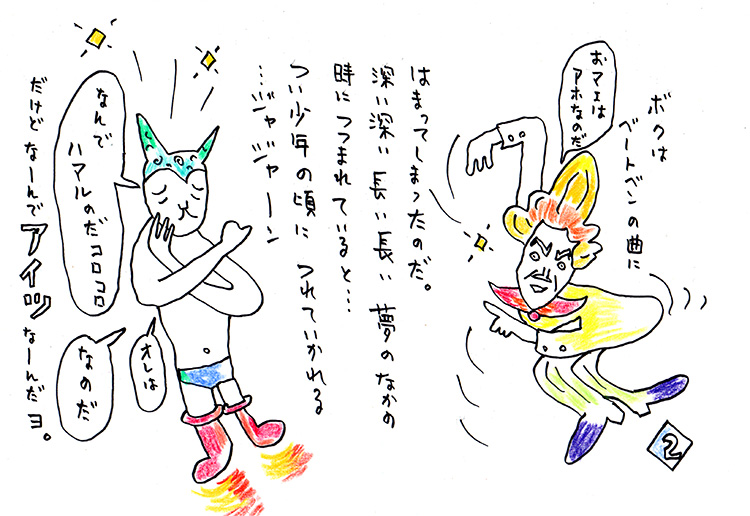 ボクは
ベートベンの曲に
おマエは
アホなのだ
はまってしまったのだ。
深い深い長い長い夢のなかの
時につつまれていると…
つい少年の頃につれていかれる
…ジャジャーン
なんで
ハマルのだコロコロ
オレは
なのだ
だけどなーんでアイツなーんだヨ。
2